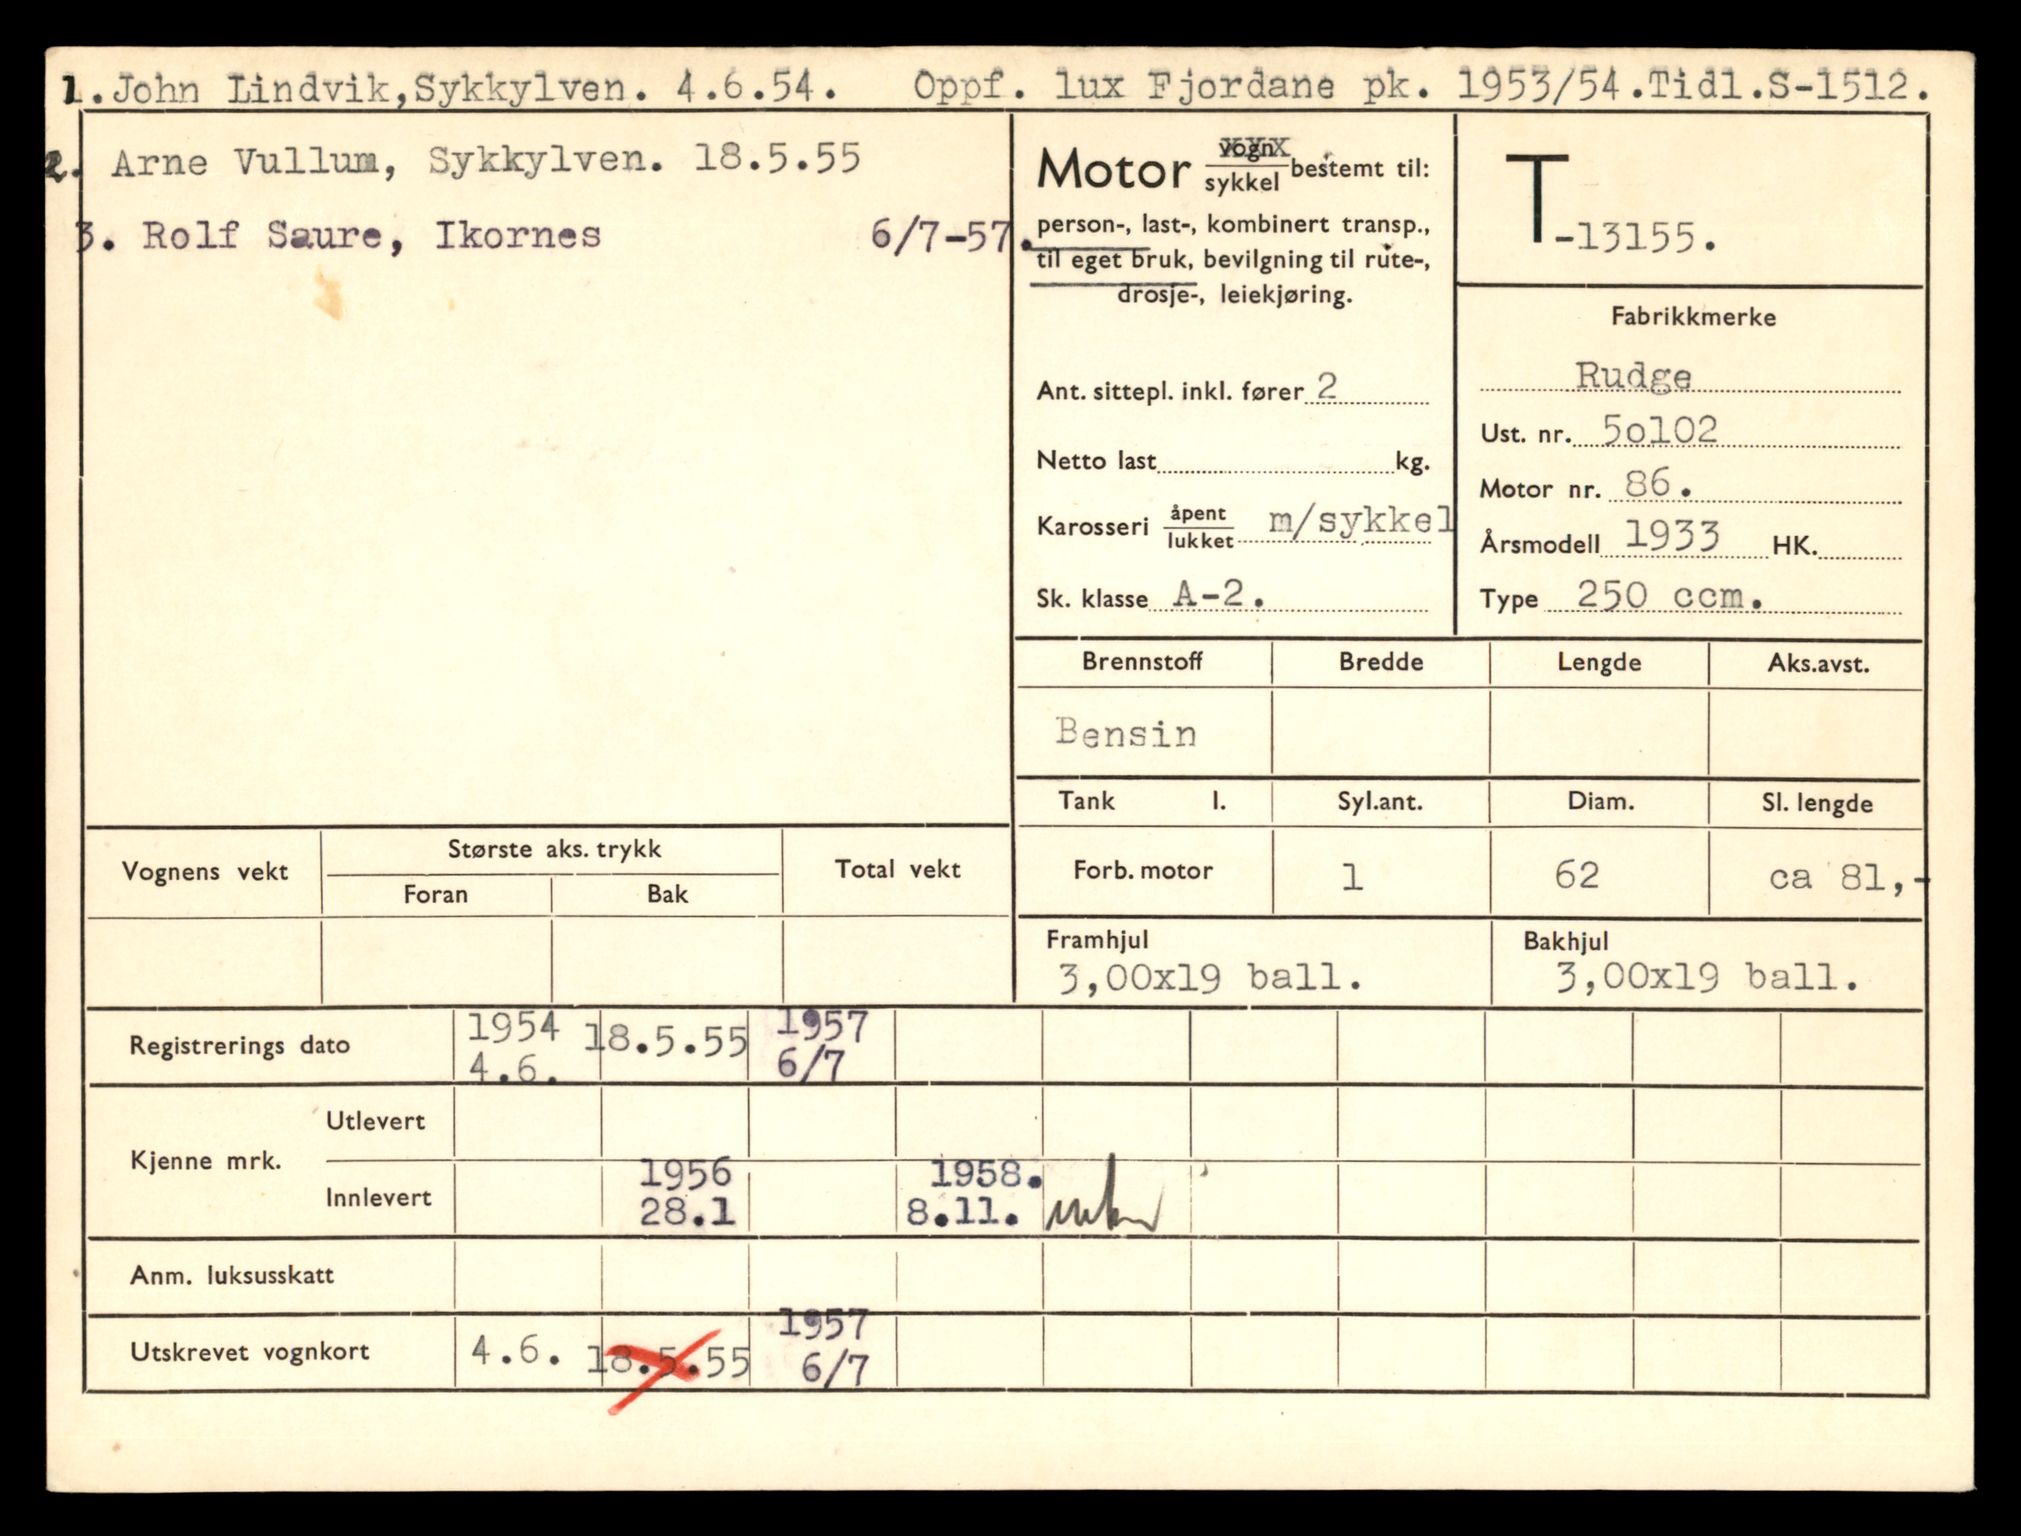 1. John Lindvik, Sykkylven. 4.6.54. Oppf. lux Fjordane pk. 1953/54. Tidl. S-1512.
2. Arne Vullum, Sykkylven. 18.5.55
3. Rolf Saure, Ikornes 6/7-57.
Motor vogn/sykkel bestemt til:
person-, last-, kombinert transp.,
til eget bruk, bevilgning til rute-,
drosje-, leiekjøring.
Ant. sittepl. inkl. fører 2
Netto last kg.
Karosseri åpent/lukket m/sykkel
Sk. klasse A-2.
T-13155.
Fabrikkmerke
Rudge
Ust. nr. 5o102
Motor nr. 86.
Årsmodell 1933 HK.
Type 250 ccm.
Brennstoff Bredde Lengde Aks.avst.
Bensin
Tank l. Syl.ant. Diam. Sl. lengde
Forb. motor 1 62 ca 81,-
Framhjul Bakhjul
3,00x19 ball. 3,00x19 ball.
Vognens vekt Største aks. trykk Total vekt
Foran Bak
Registrerings dato 1954 4.6. 18.5.55 1957 6/7
Kjenne mrk. Utlevert
Innlevert 1956 28.1 1958. 8.11.
Anm. luksusskatt
Utskrevet vognkort 4.6. 18.5.55 1957 6/7